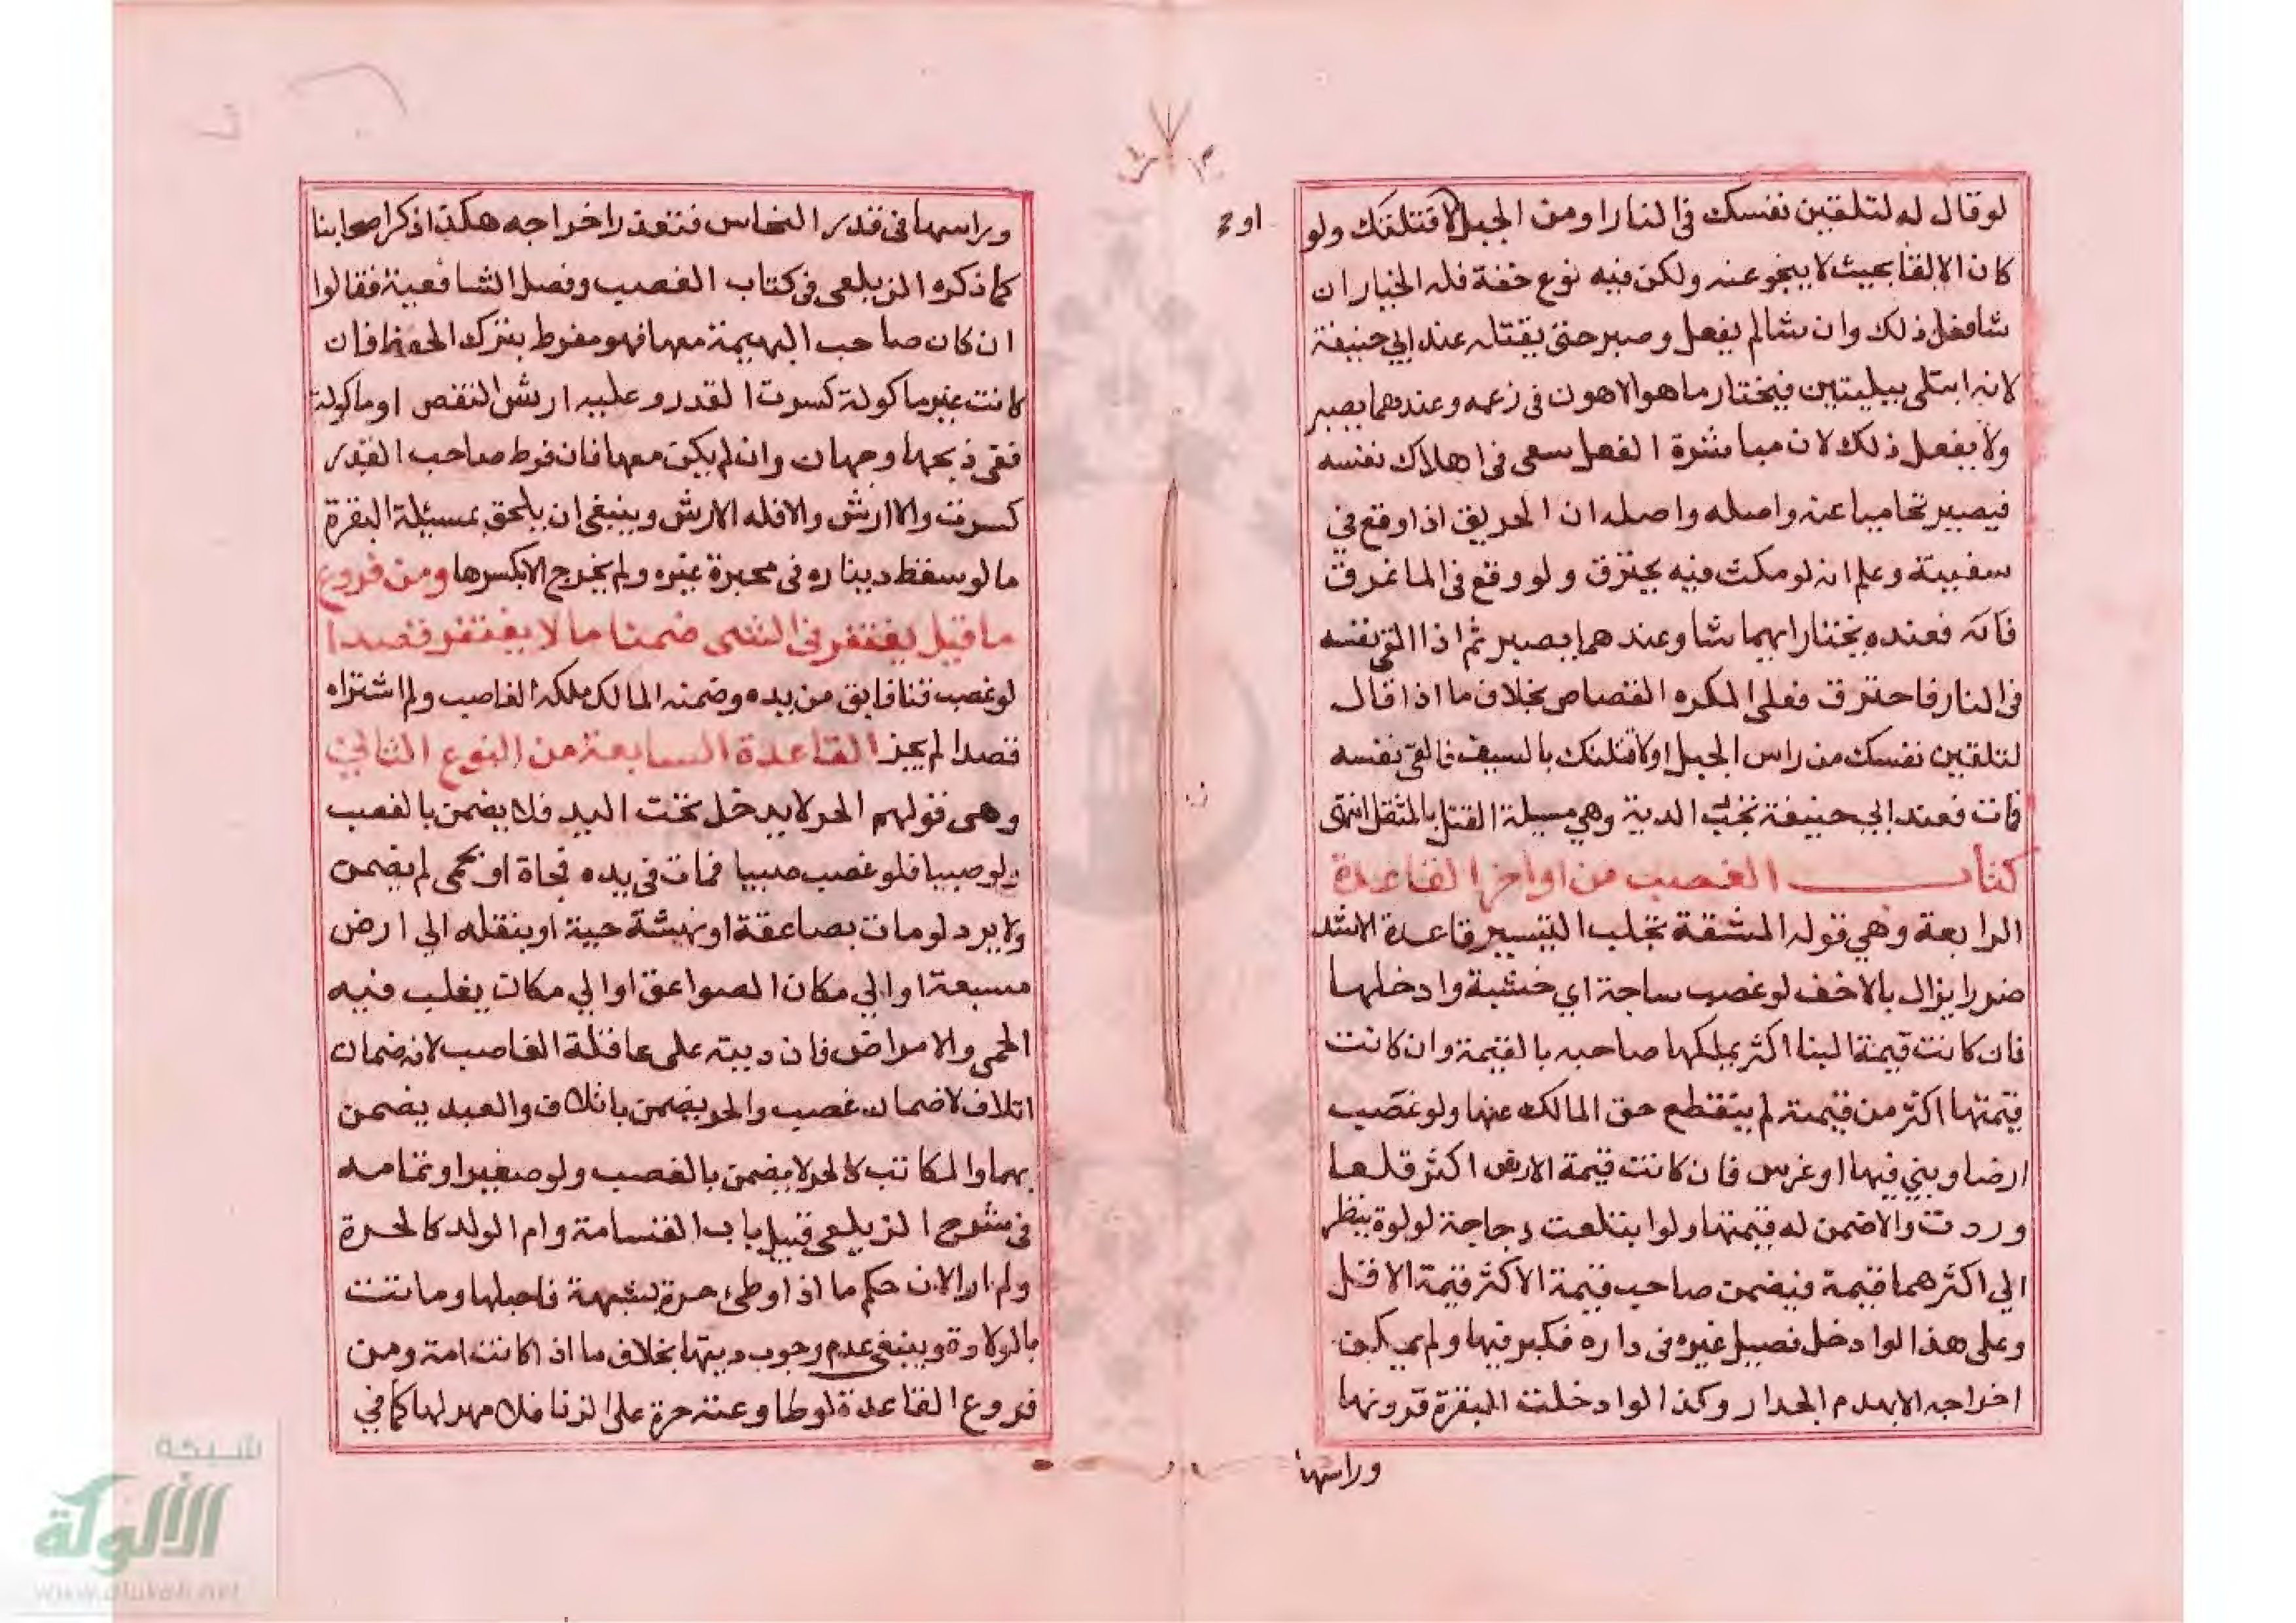 لو قال له لتلقين نفسك فى النار او من الجبل لاقتلنك ولو
او ح
كان الالقا بحيث لا ينجو عنه ولكن فيه نوع خفة فله الخيار ان
شا فعل ذلك وان شا لم يفعل وصبر حتى يقتله عند ابي حنيفة
لانه ابتلى ببليتين فيختار ما هو الاهون فى زعمه وعندهما يصبر
ولا يفعل ذلك لان مباشرة الفعل سعى فى اهلاك نفسه
فيصير تحاميا عنه واصله واصله ان الحريق اذا وقع في
سفينة وعلم انه لو مكث فيه يحترق ولو وقع فى الما غرق
فانه فعنده يختار ايهما شا وعندهما يصبر ثم اذا القى نفسه
فى النار فاحترق فعلى المكره القصاص بخلاف ما اذا قال
لتلقين نفسك من راس الجبل او لاقتلنك بالسيف فالقى نفسه
فمات فعند ابي حنيفة تجب الدية وهي مسيلة القتل بالمثقل انتهى
كتاب الغصب من اواخر القاعدة
الرابعة وهي قوله المشقة تجلب التيسير قاعدة الاشد
ضررا يزال بالاخف لو غصب ساجة اي خشبة وادخلها
فان كانت قيمة البنا اكثر يملكها صاحبه بالقيمة وان كانت
قيمتها اكثر من قيمته لم ينقطع حق المالك عنها ولو غصب
ارضا وبني فيها او غرس فان كانت قيمة الارض اكثر قلعها
وردت والا ضمن له قيمتها ولو ابتلعت دجاجة لولوة ينظر
الي اكثرهما قيمة فيضمن صاحب قيمة الاكثر قيمة الاقل
وعلى هذا لو ادخل فصيل غيره فى داره فكبر فيها ولم يمكن
اخراجه الا بهدم الجدار وكذا لو ادخلت البقرة قرونها
وراسها
وراسها فى قدر النحاس فتعذر اخراجه هكذا ذكر اصحابنا
كما ذكره الزيلعى فى كتاب الغصب وفصل الشافعية فقالوا
ان كان صاحب البهيمة معها فهو مفرط بترك الحفظ فان
كانت غير ماكولة كسرت القدر وعليه ارش النقص او ماكولة
ففى ذبحها وجهان وان لم يكن معها فان فرط صاحب القدر
كسرت والا ارش والا فله الارش وينبغى ان يلحق بمسيلة البقرة
ما لو سقط ديناره فى محبرة غيره ولم يخرج الا بكسرها ومن فروع
ما قيل يغتفر فى الشى ضمنا ما لا يغتفر قصدا
لو غصب قنا فابق من يده وضمنه المالك ملكه الغاصب ولو اشتراه
قصدا لم يجز القاعدة السابعة من النوع الثاني
وهى قولهم الحر لا يدخل تحت اليد فلا يضمن بالغصب
ولو صبيا فلو غصب صبيا فمات فى يده فجاة او بحمى لم يضمن
ولا يرد لو مات بصاعقة او نهشة حية او بنقله الي ارض
مسبعة او الي مكان الصواعق او الي مكان يغلب فيه
الحمى والامراض فان ديته على عاقلة الغاصب لانه ضمان
اتلاف لا ضمان غصب والحر يضمن باتلاف والعبد يضمن
بهما والمكاتب كالحر لا يضمن بالغصب ولو صغيرا وتمامه
فى شرح الزيلعى قبيل باب القسامة وام الولد كالحرة
ولم ار الان حكم ما اذا وطئ حرة بشبهة فاحبلها وماتت
بالولادة وينبغى عدم وجوب ديتها بخلاف ما اذا كانت امة ومن
فروع القاعدة لو طاوعته حرة على الزنا فلا مهر لها كما في
شبكة
الألوكة
www.alukah.net